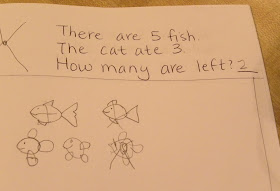 There are 5 fish.
The cat ate 3.
How many are left? 2